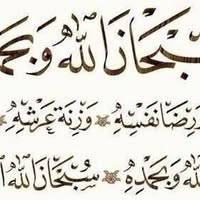 ـبْحَانَ اللهِ وَبِحَمـ
وَرِضَا نَفْسِهِ ۞ وَزِنَةَ عَرْشِهِ
اللهِ وَبِحَمْدِهِ ۞ سُبْحَانَ اللهِ